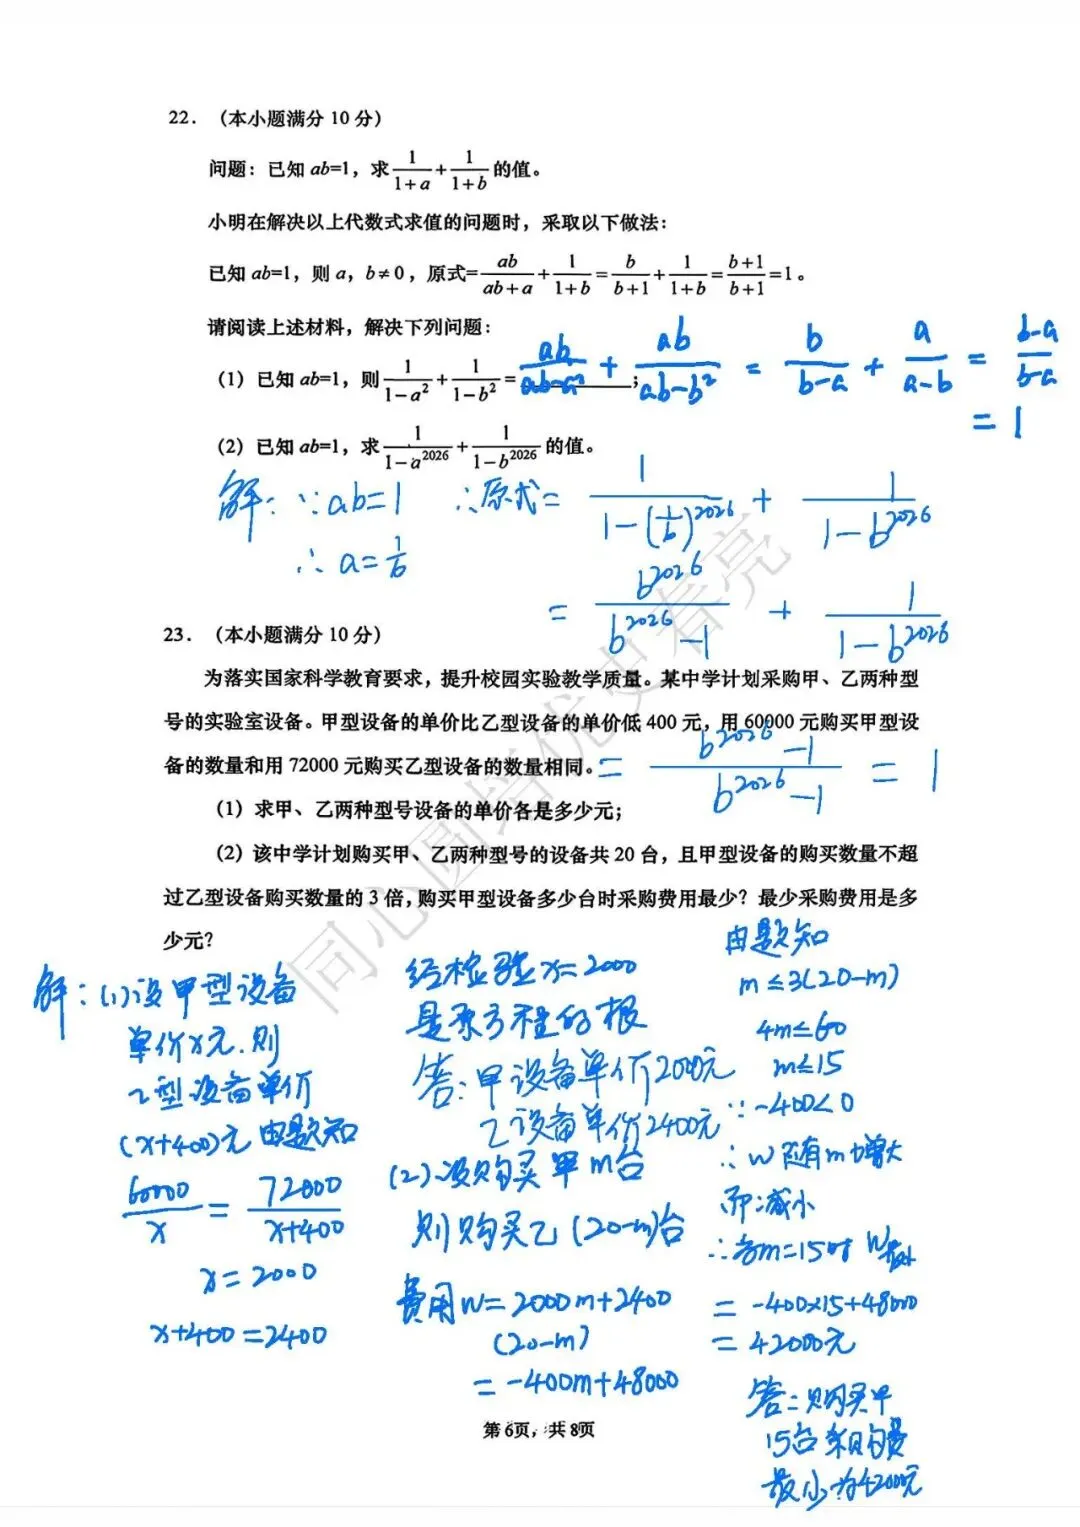 22. （本小题满分 10 分）
问题：已知 ab=1，求 1/(1+a) + 1/(1+b) 的值。
小明在解决以上代数式求值的问题时，采取以下做法：
已知 ab=1，则 a，b≠0，原式= ab/(ab+a) + 1/(1+b) = b/(b+1) + 1/(1+b) = (b+1)/(b+1) =1。
请阅读上述材料，解决下列问题：
（1）已知 ab=1，则 1/(1-a²) + 1/(1-b²) = ab/(ab-a²) + ab/(ab-b²) ； = b/(b-a) + a/(a-b) = (b-a)/(b-a)
= 1
（2）已知 ab=1，求 1/(1-a²⁰²⁶) + 1/(1-b²⁰²⁶) 的值。
解：∵ab=1 ∴原式= 1/(1-(1/b)²⁰²⁶) + 1/(1-b²⁰²⁶)
∴a=1/b
= b²⁰²⁶/(b²⁰²⁶-1) + 1/(1-b²⁰²⁶)
= (b²⁰²⁶-1)/(b²⁰²⁶-1) = 1
23. （本小题满分 10 分）
为落实国家科学教育要求，提升校园实验教学质量。某中学计划采购甲、乙两种型
号的实验室设备。甲型设备的单价比乙型设备的单价低 400 元，用 60000 元购买甲型设
备的数量和用 72000 元购买乙型设备的数量相同。
（1）求甲、乙两种型号设备的单价各是多少元；
（2）该中学计划购买甲、乙两种型号的设备共 20 台，且甲型设备的购买数量不超
过乙型设备购买数量的 3 倍，购买甲型设备多少台时采购费用最少？最少采购费用是多
少元？
解：(1)设甲型设备
单价x元.则
乙型设备单价
(x+400)元 由题知
60000/x = 72000/(x+400)
x=2000
x+400=2400
经检验x=2000
是原方程的根
答：甲设备单价2000元
乙设备单价2400元
(2)设购买甲m台
则购买乙(20-m)台
费用w=2000m+2400
(20-m)
=-400m+48000
由题知
m≤3(20-m)
4m≤60
m≤15
∵-400<0
∴w随着m增大
而减小
∴当m=15时 w最小
=-400×15+48000
=42000元
答：购买甲
15台采购费
最少为42000元
第 6页，共 8页
同心圆培优史春亮